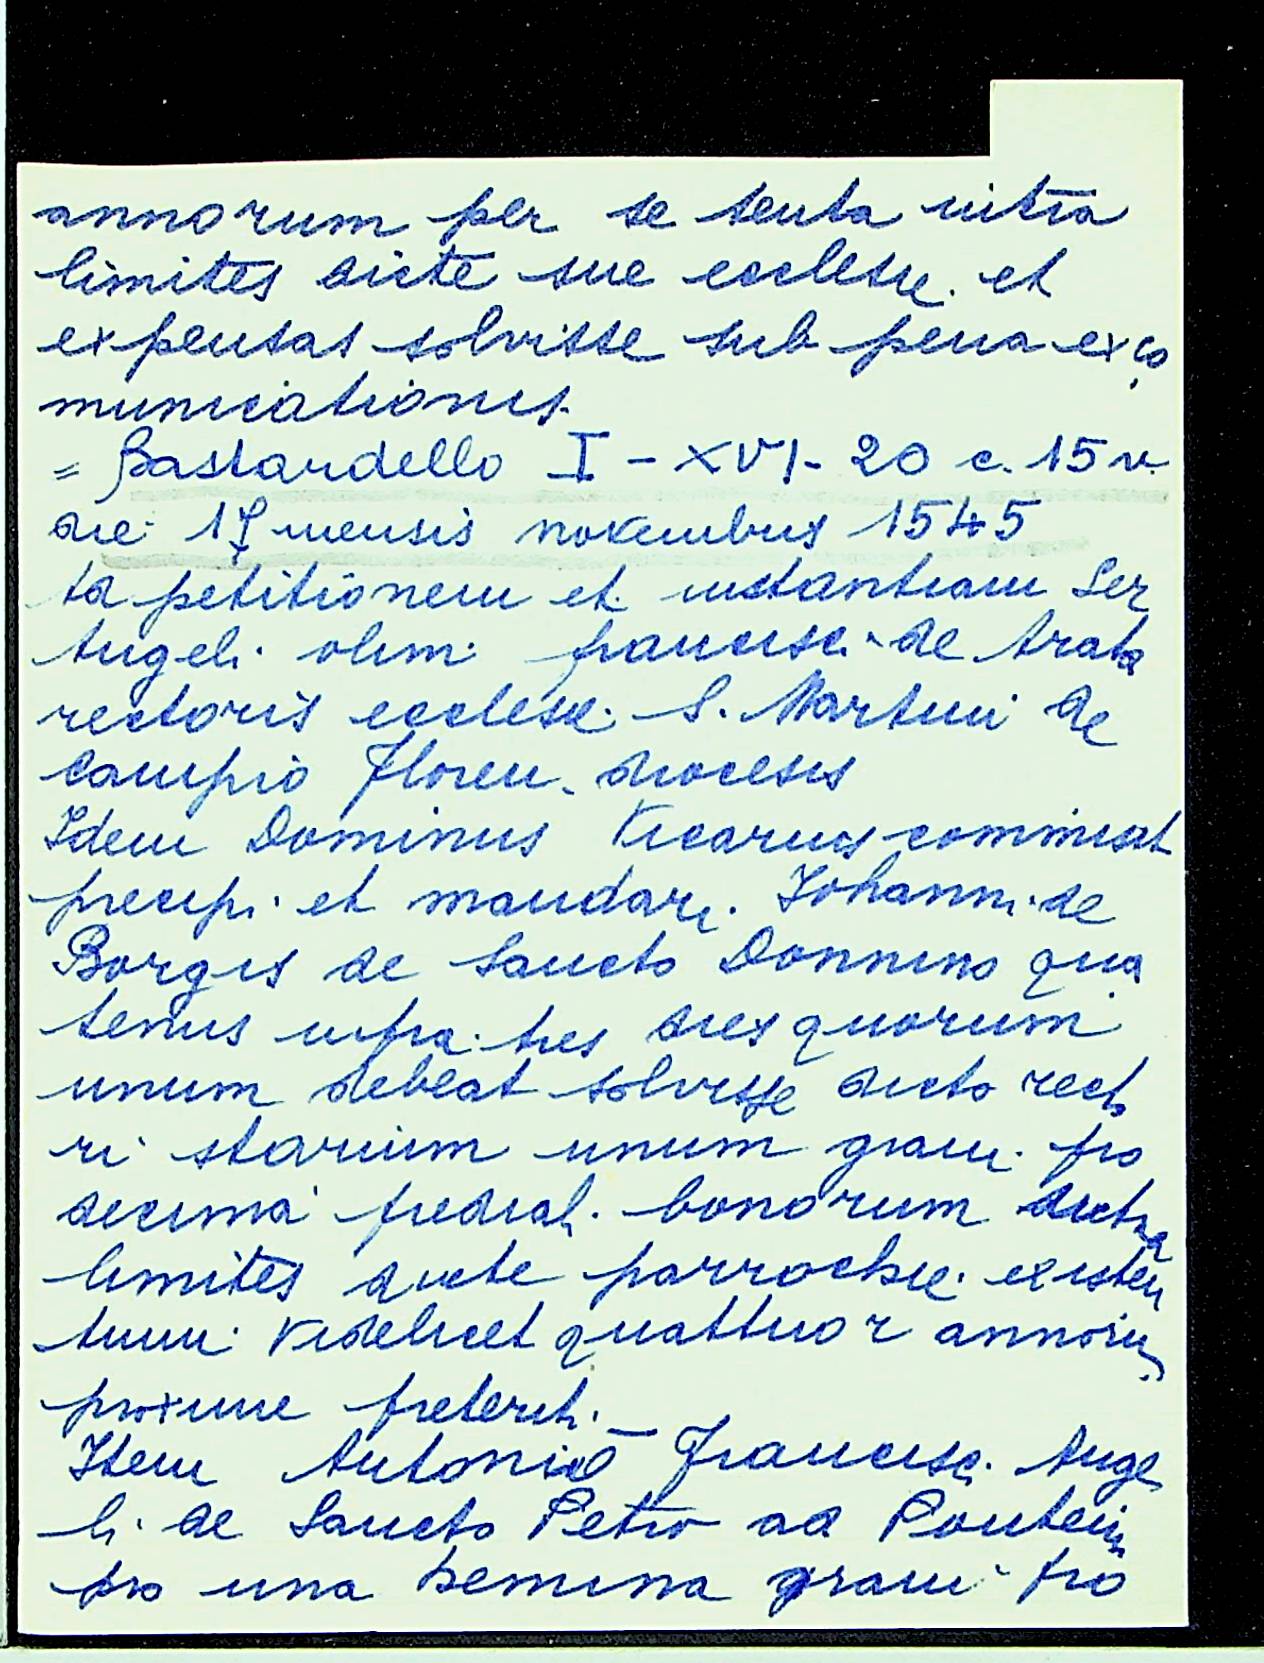 annorum per se tenta intra
limites dicte sue ecclesie et
expensas solvisse sub pena exco
municationis.
= Bastardello I - XVI - 20 c. 15 v.
die 17 mensis novembris 1545
Ad petitionem et instantiam Ser
Angeli olim francisci de Arata
rectoris ecclesie S. Martini de
Campio Floren. diocesis
Idem Dominus Vicarius commisit
precipi et mandari Iohanni de
Borgis de Sancto Donnino qua
tenus infra tres dies quorum
unum debeat solvisse dicto recto
ri starium unum grani pro
decima predial. bonorum
limites dicte parrochie existen
tium videlicet quattuor annorum
proxime preterit.
Item Antonio Francisci Ange
li de Sancto Petro ad Pontem
pro una hemina grani pro